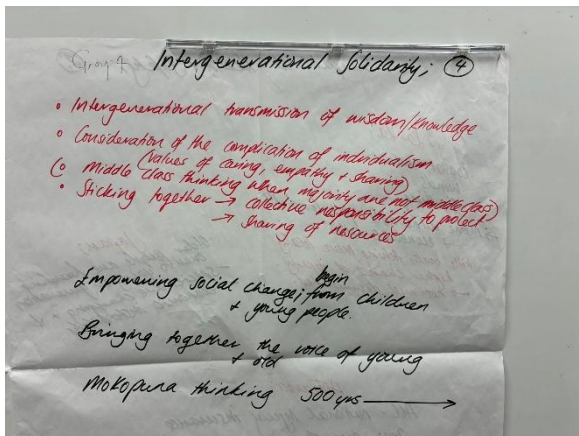 Group 4
Intergenerational Solidarity; ④
• Intergenerational transmission of wisdom/knowledge
• Consideration of the complication of individualism
(values of caring, empathy + sharing)
(• Middle class thinking when majority are not middle class)
• Sticking together → collective responsibility to protect
→ sharing of resources
begin
Empowering social change; from children
+ young people.
Bringing together the voice of young
+ old
Mokopuna thinking 500 yrs →